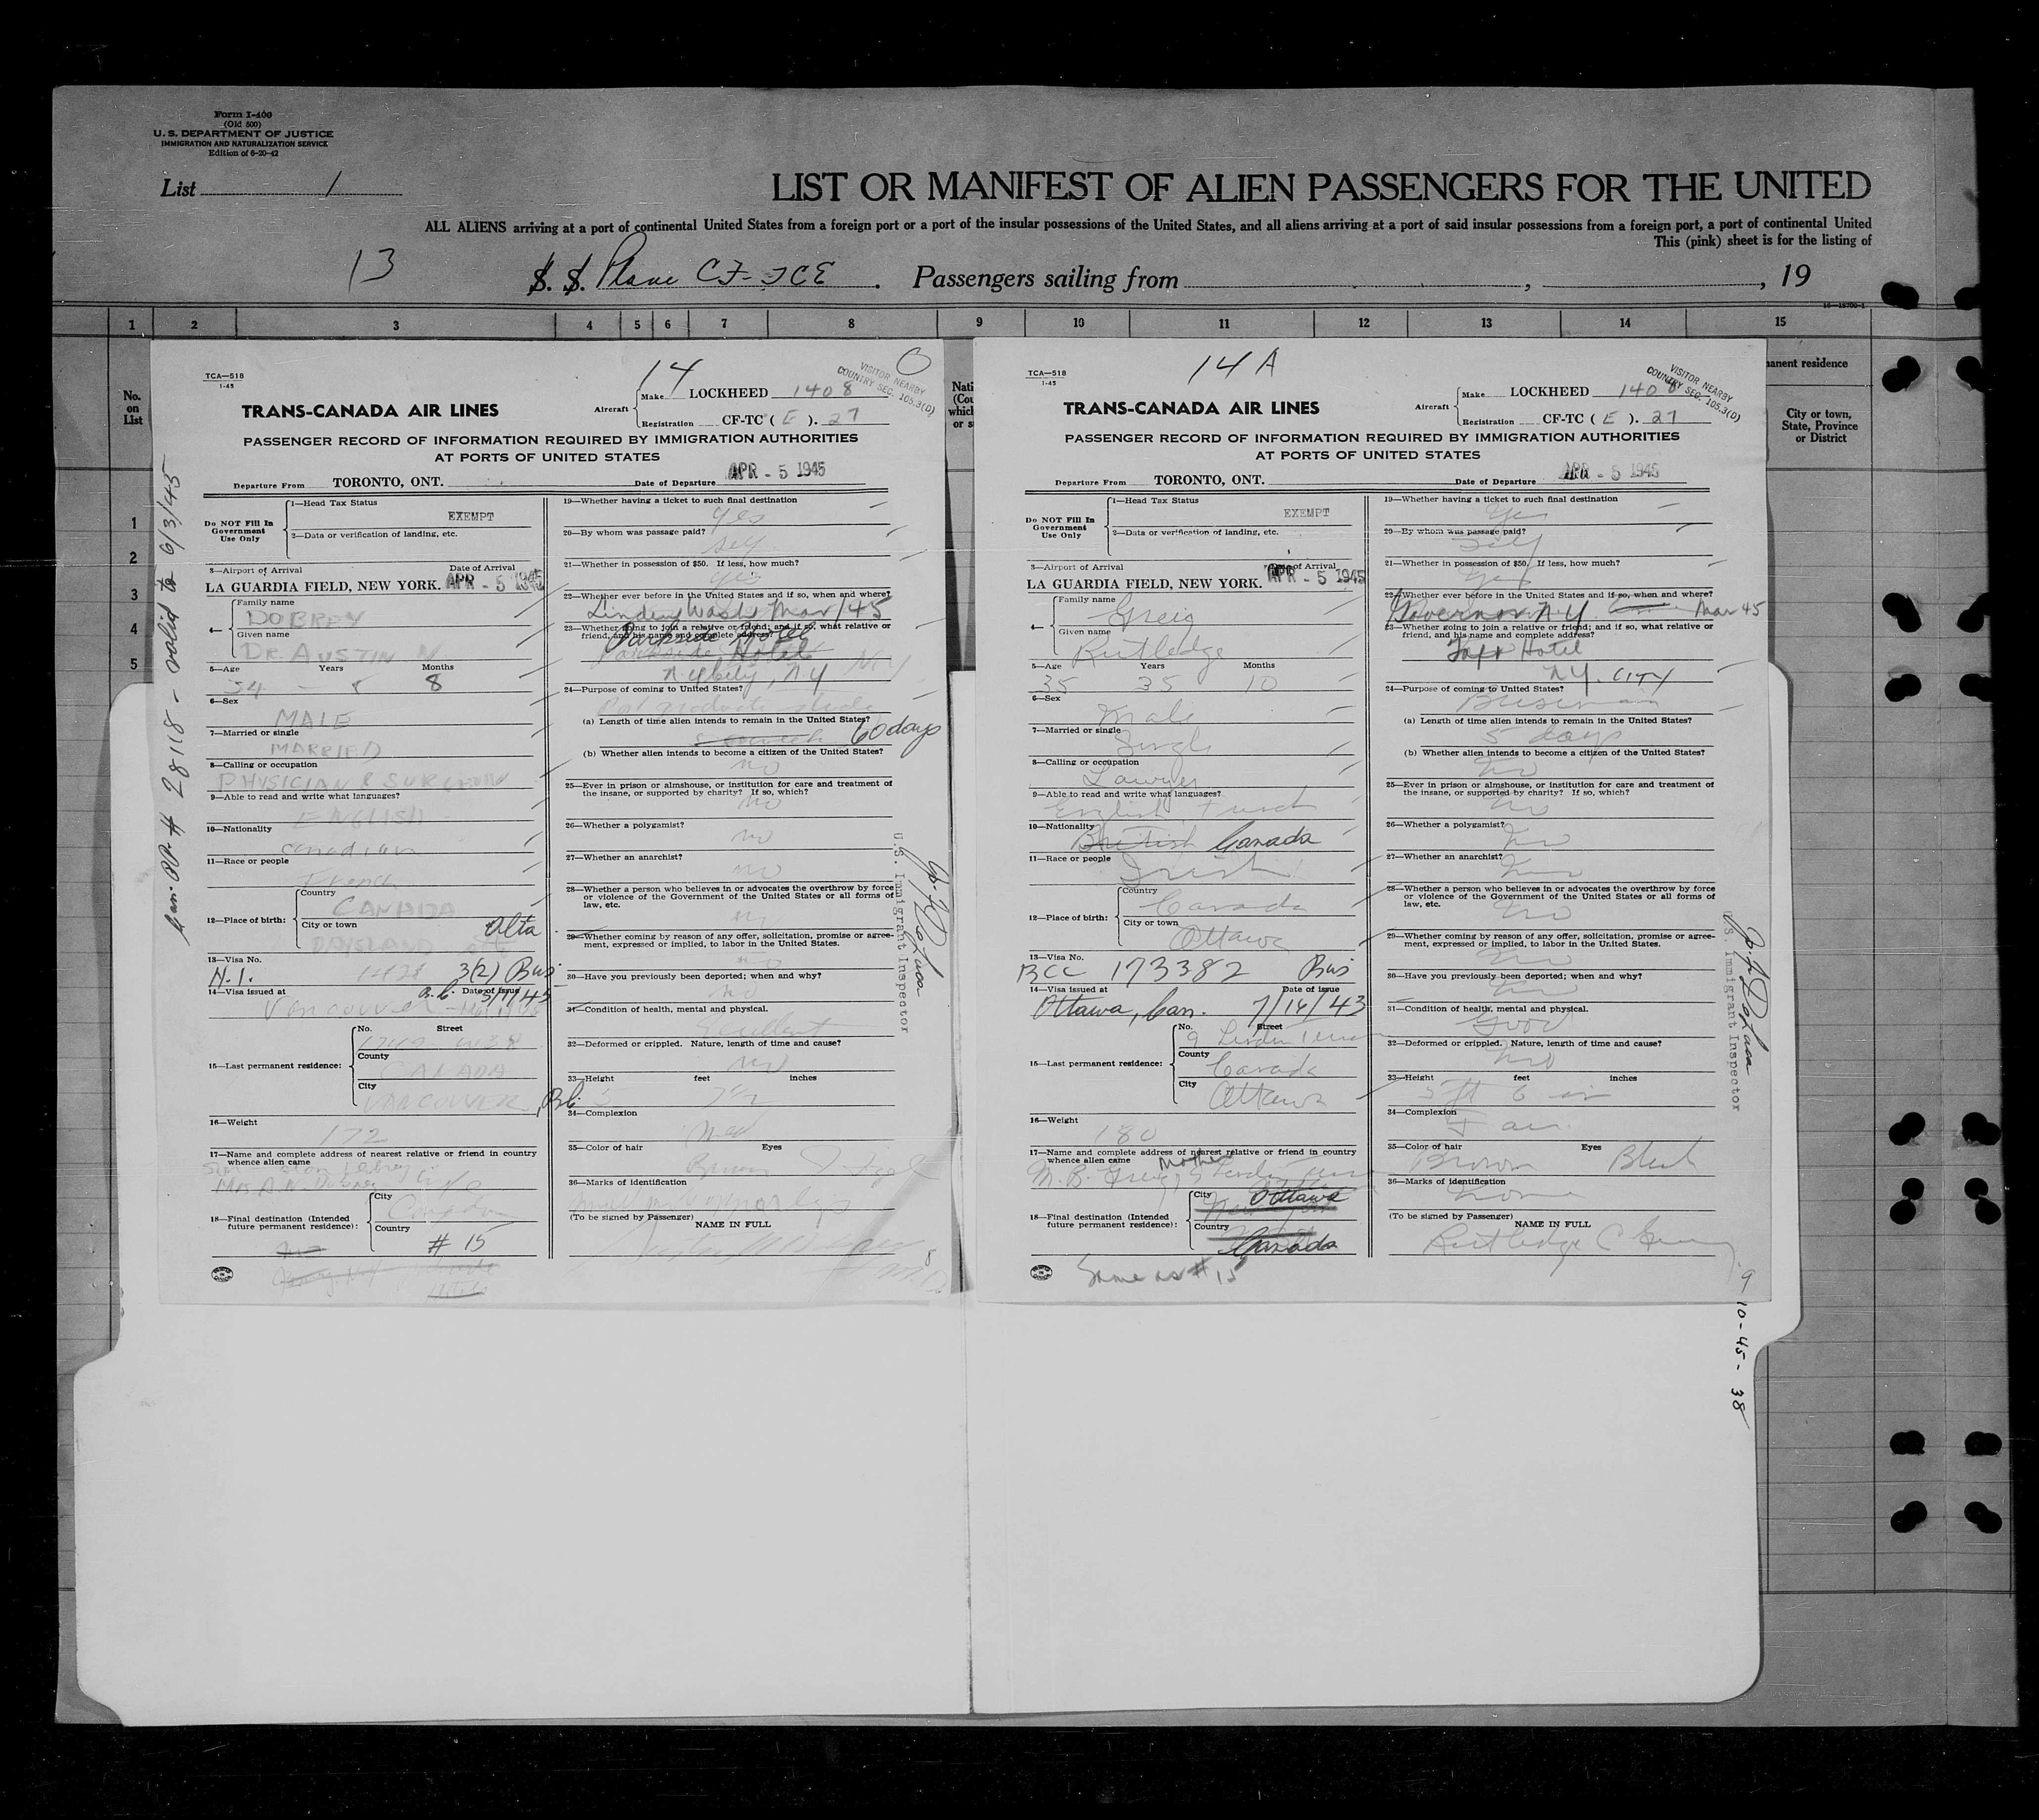 Form I-400
(Old 500)
U. S. DEPARTMENT OF JUSTICE
IMMIGRATION AND NATURALIZATION SERVICE
Edition of 6-20-42
List 1
LIST OR MANIFEST OF ALIEN PASSENGERS FOR THE UNITED
ALL ALIENS arriving at a port of continental United States from a foreign port or a port of the insular possessions of the United States, and all aliens arriving at a port of said insular possessions from a foreign port, a port of continental United
This (pink) sheet is for the listing of
13
S. S. Plane CF-TCE. Passengers sailing from , , 19
1 2 3 4 5 6 7 8 9 10 11 12 13 14 15
No. on List
1
2
3
4
5
TCA—518
1-45
14
VISITOR NEARBY
COUNTRY SEC. 105.3(D)
TRANS-CANADA AIR LINES
Aircraft Make LOCKHEED 1408
Registration CF-TC ( E ). 27
PASSENGER RECORD OF INFORMATION REQUIRED BY IMMIGRATION AUTHORITIES
AT PORTS OF UNITED STATES
Departure From TORONTO, ONT. Date of Departure APR - 5 1945
Do NOT Fill In Government Use Only
1—Head Tax Status
EXEMPT
2—Data or verification of landing, etc.
3—Airport of Arrival Date of Arrival
LA GUARDIA FIELD, NEW YORK. APR - 5 1945
4— Family name
DOBREY
Given name
DR. AUSTIN N
5—Age Years Months
34 8
6—Sex
MALE
7—Married or single
MARRIED
8—Calling or occupation
PHYSICIAN & SURGEON
9—Able to read and write what languages?
ENGLISH
10—Nationality
Canadian
11—Race or people
French
12—Place of birth: Country
CANADA
City or town Alta
DAYSLAND
13—Visa No.
N.I. 1428 3(2) Bus
14—Visa issued at Date of issue
Vancouver B.C.
15—Last permanent residence: No. Street
County
CANADA
City
VANCOUVER, B.C.
16—Weight
172
17—Name and complete address of nearest relative or friend in country
whence alien came
18—Final destination (Intended
future permanent residence): City
Country
# 15
19—Whether having a ticket to such final destination
yes
20—By whom was passage paid?
self
21—Whether in possession of $50. If less, how much?
yes
22—Whether ever before in the United States and if so, when and where?
Linden, Wash, Mar/45
23—Whether going to join a relative or friend; and if so, what relative or
friend, and his name and complete address?
Parkside Hotel
N.Y. City, N.Y
24—Purpose of coming to United States?
(a) Length of time alien intends to remain in the United States?
60 days
(b) Whether alien intends to become a citizen of the United States?
no
25—Ever in prison or almshouse, or institution for care and treatment of
the insane, or supported by charity? If so, which?
no
26—Whether a polygamist?
no
27—Whether an anarchist?
no
28—Whether a person who believes in or advocates the overthrow by force
or violence of the Government of the United States or all forms of
law, etc.
no
29—Whether coming by reason of any offer, solicitation, promise or agree-
ment, expressed or implied, to labor in the United States.
no
30—Have you previously been deported; when and why?
no
31—Condition of health, mental and physical.
Excellent
32—Deformed or crippled. Nature, length of time and cause?
no
33—Height feet inches
34—Complexion
Med
35—Color of hair Eyes
Brown
36—Marks of identification
(To be signed by Passenger) NAME IN FULL
Can. PP. # 28118 - valid to 6/3/45
U.S. Immigrant Inspector
TCA—518
1-45
14 A
VISITOR NEARBY
COUNTRY SEC. 105.3(D)
TRANS-CANADA AIR LINES
Aircraft Make LOCKHEED 1408
Registration CF-TC ( E ). 27
PASSENGER RECORD OF INFORMATION REQUIRED BY IMMIGRATION AUTHORITIES
AT PORTS OF UNITED STATES
Departure From TORONTO, ONT. Date of Departure APR - 5 1945
Do NOT Fill In Government Use Only
1—Head Tax Status
EXEMPT
2—Data or verification of landing, etc.
3—Airport of Arrival Date of Arrival
LA GUARDIA FIELD, NEW YORK. APR - 5 1945
4— Family name
Greig
Given name
Rutledge
5—Age Years Months
35 35 10
6—Sex
Male
7—Married or single
Single
8—Calling or occupation
Lawyer
9—Able to read and write what languages?
English, French
10—Nationality
British Canada
11—Race or people
Irish
12—Place of birth: Country
Canada
City or town
Ottawa
13—Visa No.
BCC 173382 Bus
14—Visa issued at Date of issue
Ottawa, Can. 7/16/43
15—Last permanent residence: No. Street
9 Linden Terr
County
Canada
City
Ottawa
16—Weight
180
17—Name and complete address of nearest relative or friend in country
whence alien came Mother
18—Final destination (Intended
future permanent residence): City
Ottawa
Country
Canada
Same as # 15
19—Whether having a ticket to such final destination
Yes
20—By whom was passage paid?
Self
21—Whether in possession of $50. If less, how much?
Yes
22—Whether ever before in the United States and if so, when and where?
Governor N.Y Mar 45
23—Whether going to join a relative or friend; and if so, what relative or
friend, and his name and complete address?
Taft Hotel
N.Y. CITY
24—Purpose of coming to United States?
Business
(a) Length of time alien intends to remain in the United States?
5 days
(b) Whether alien intends to become a citizen of the United States?
No
25—Ever in prison or almshouse, or institution for care and treatment of
the insane, or supported by charity? If so, which?
No
26—Whether a polygamist?
No
27—Whether an anarchist?
No
28—Whether a person who believes in or advocates the overthrow by force
or violence of the Government of the United States or all forms of
law, etc.
No
29—Whether coming by reason of any offer, solicitation, promise or agree-
ment, expressed or implied, to labor in the United States.
No
30—Have you previously been deported; when and why?
No
31—Condition of health, mental and physical.
Good
32—Deformed or crippled. Nature, length of time and cause?
No
33—Height feet inches
5 ft 6 in
34—Complexion
Fair
35—Color of hair Eyes
Brown Black
36—Marks of identification
None
(To be signed by Passenger) NAME IN FULL
Rutledge C Greig
U.S. Immigrant Inspector
9-10-45-38
City or town,
State, Province
or District